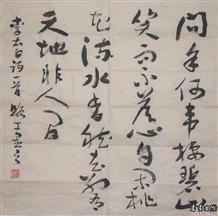 問余何事棲碧山
笑而不答心自閑桃
花流水杳然去別有
天地非人間
李太白詩一首